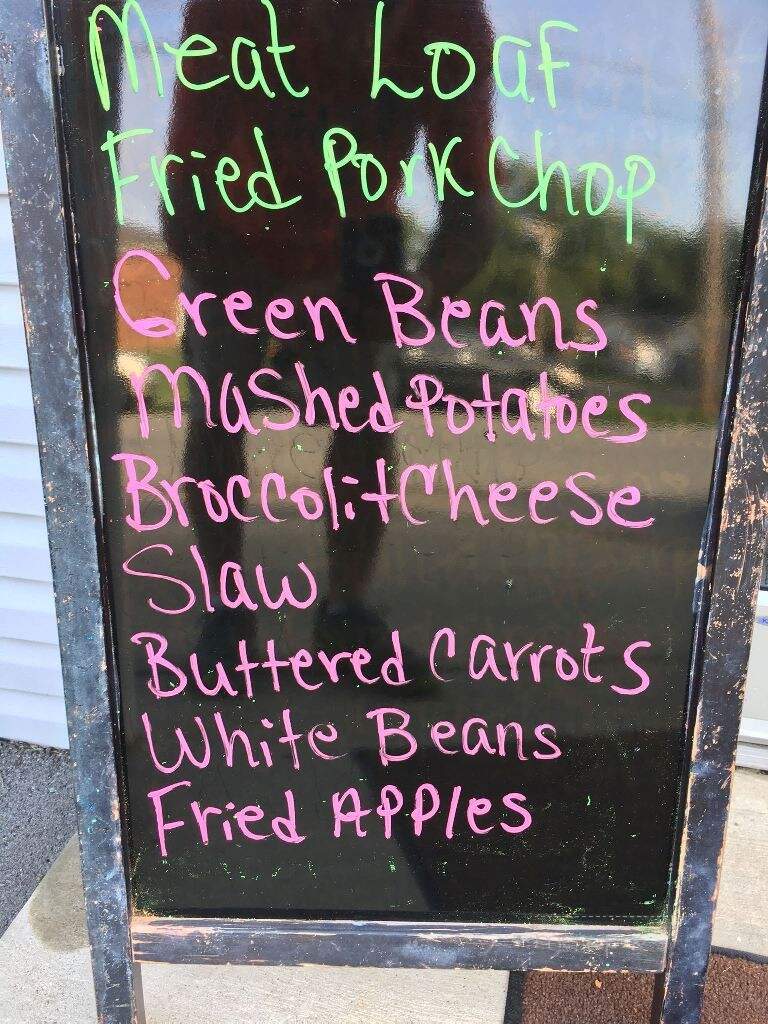 Meat Loaf
Fried Pork Chop
Green Beans
Mashed Potatoes
Broccoli+Cheese
Slaw
Buttered Carrots
White Beans
Fried Apples